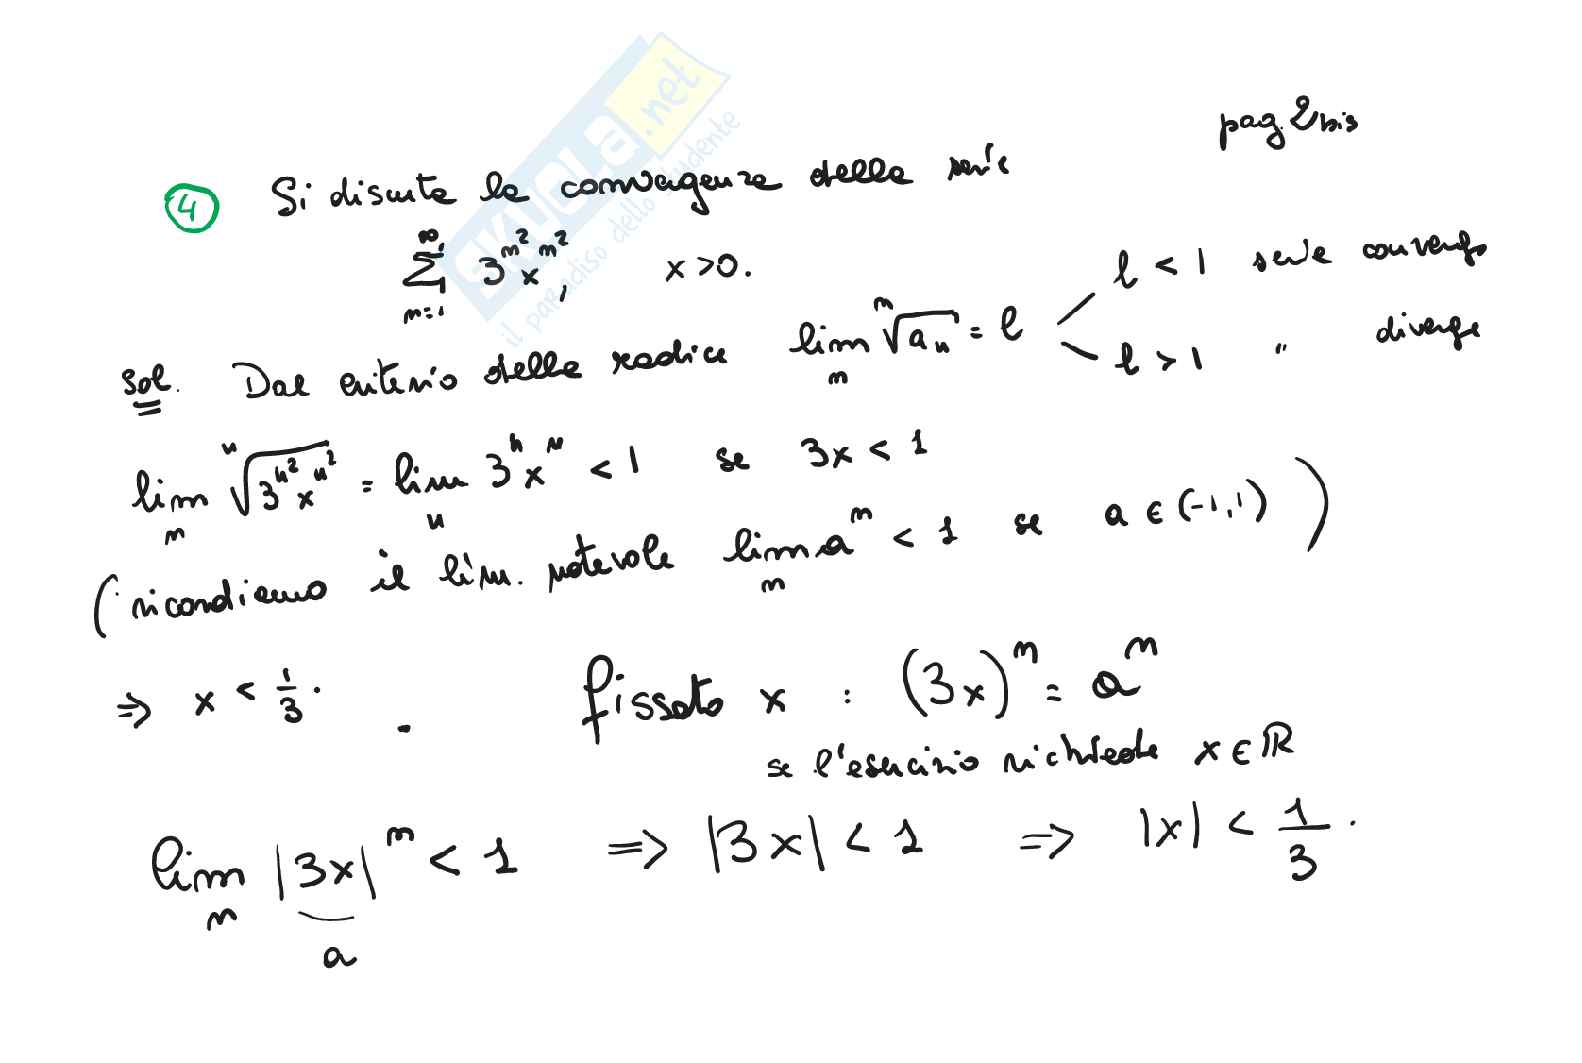 pag. 2 bis
4 Si discuta la convergenza della serie
∑_{n=1}^{∞} 3^{n²} x^{n²}, x > 0.
sol. Dal criterio della radice lim_n ⁿ√a_n = l
l < 1 serie converge
l > 1 " diverge
lim_n ⁿ√(3^{n²} x^{n²}) = lim_n 3^n x^n < 1 se 3x < 1
(ricordiamo il lim. notevole lim_n a^n < 1 se a ∈ (-1,1))
⇒ x < 1/3. fissato x : (3x)^n = a^n
se l'esercizio richiede x ∈ ℝ
lim_n |3x|^n < 1 ⇒ |3x| < 1 ⇒ |x| < 1/3.
a
SKUOLA.net
il paradiso dello studente